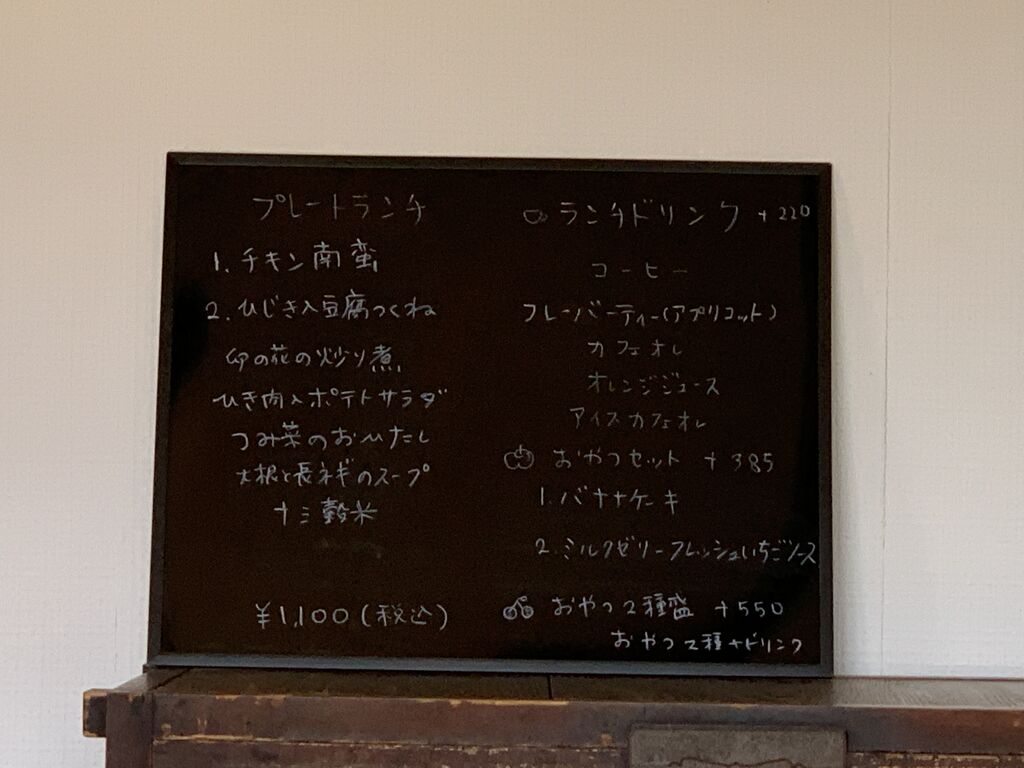 プレートランチ
1. チキン南蛮
2. ひじき入豆腐つくね
卯の花の炒り煮
ひき肉入ポテトサラダ
つみ菜のおひたし
大根と長ネギのスープ
十三穀米
¥1,100(税込)
ランチドリンク +220
コーヒー
フレーバーティー(アプリコット)
カフェオレ
オレンジジュース
アイスカフェオレ
おやつセット +385
1. バナナケーキ
2. ミルクゼリーフレッシュいちごソース
おやつ2種盛 +550
おやつ2種+ドリンク